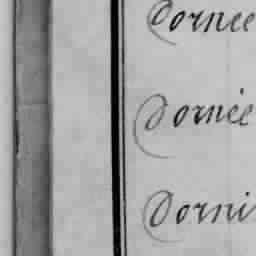 Dornee
Dornée
Dorni